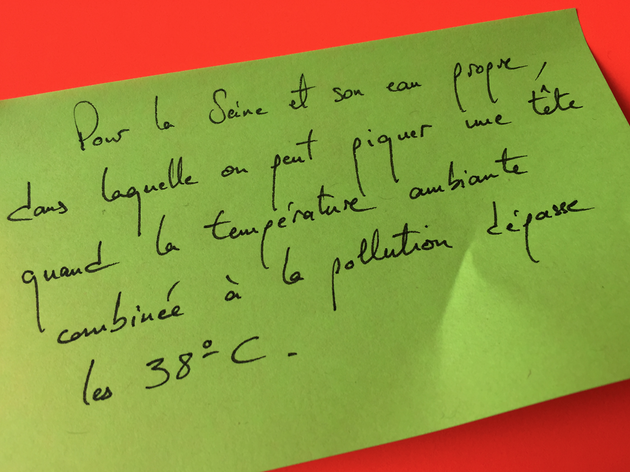 Pour la Seine et son eau propre,
dans laquelle on peut piquer une tête
quand la température ambiante
combinée à la pollution dépasse
les 38° C.